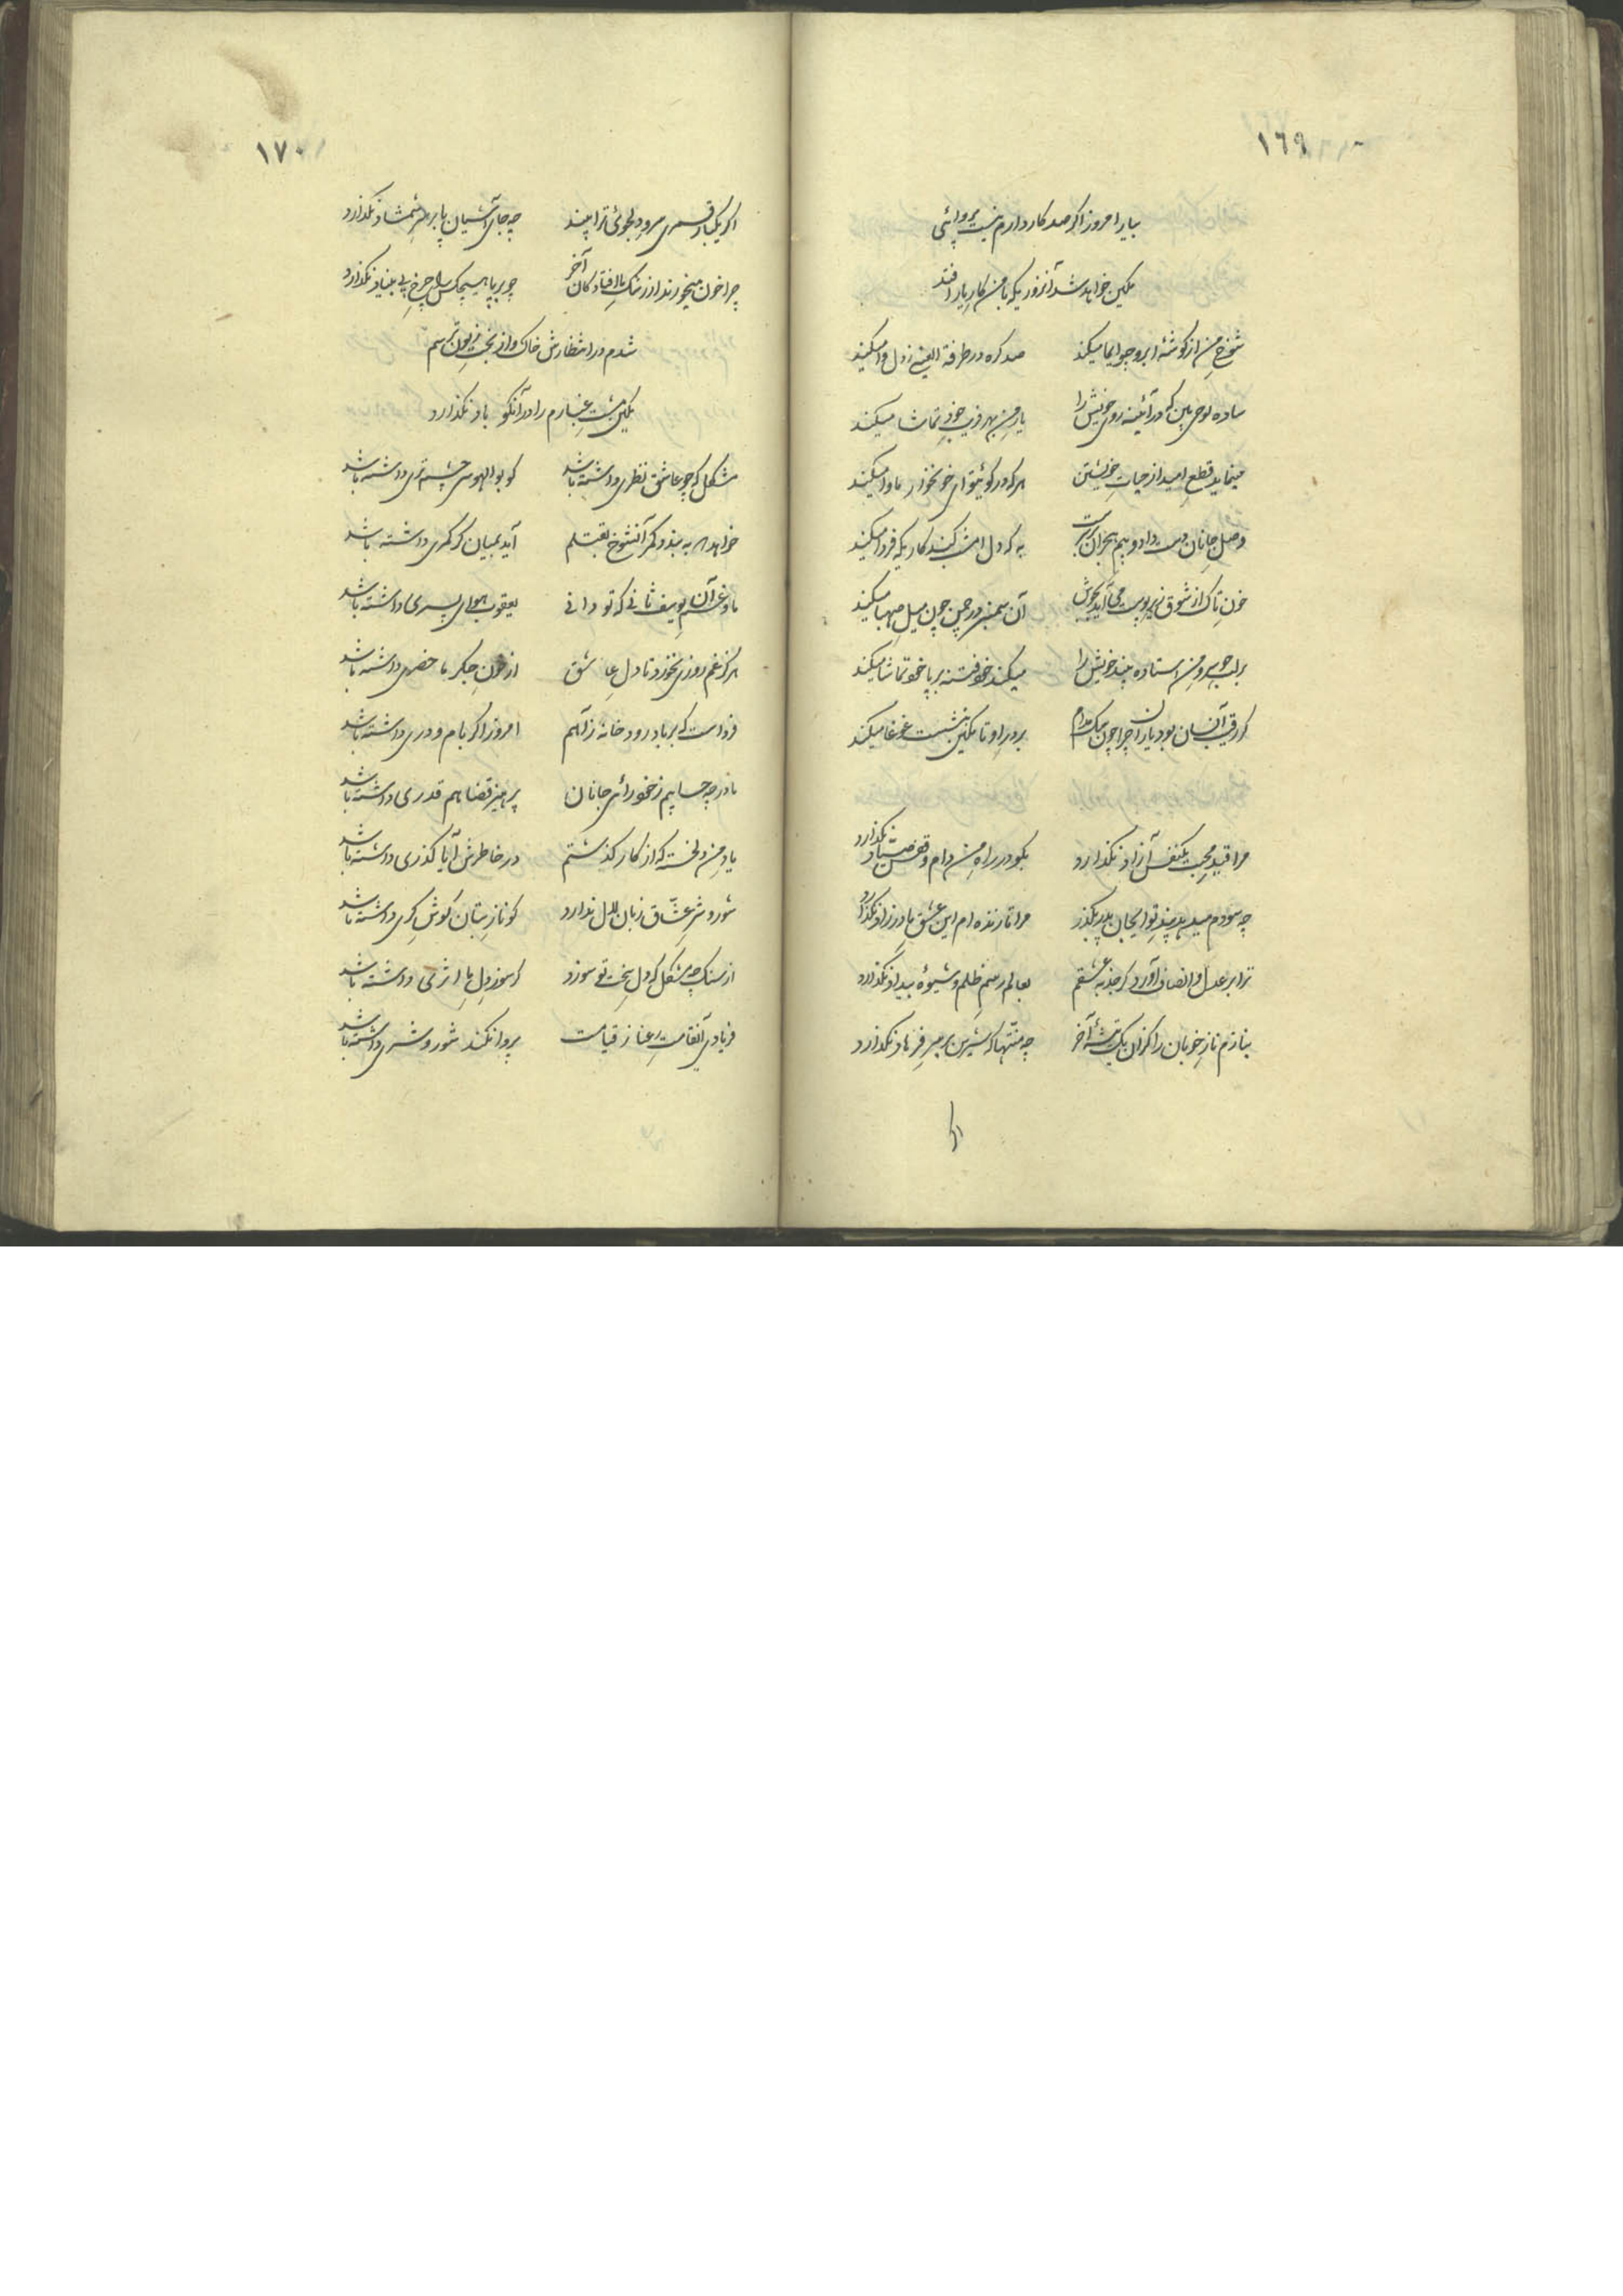 ١٦٩
بیار امروز اگر صد کار دارم نیست پروائی
تمکین خواهد شد آنروزیکه با من کار یار افتد
شوخ من از گوشهٔ ابرو چو ایما میکند صد گره در طرفة العینی ز دل وا میکند
ساده لوحی بین که در آئینه روی خویش را یار من بهر فریب خود تماشا میکند
مینماید قطع امید از حیات خویشتن هر که در کوی تو ای خونخوار ماوا میکند
وصل جانان دست داد و بیم هجران به که دل امشب کند کاریکه فردا میکند
خون تاک از شوق زیر پوست می آید بجوش آن سمنبر در چمن چون میل صهبا میکند
بر لب جو سرو من استاده بیند خویش را میکند خود فتنه بر پا خود تماشا میکند
گر رقیب آنسان بود یار چرا چون سگ مدام بر در او تا تمکین بنشست غوغا میکند
مرا قید محبت یکنفس آزاد نگذارد بگو در راه من دام و قفس صیاد نگذارد
چه سودم میدهد پند تو ایجان پدر بگذر مرا تا زنده ام این عشق مادرزاد نگذارد
ترا بر عدل و انصاف آورد گر جذبه عشقم بعالم رسم ظلم و شیوهٔ بیداد نگذارد
بنازم ناز خوبان را کزان یک تیشهٔ آخر چه منتها که شیرین بر سر فرهاد نگذارد
١٧٠
اگر یکبار قمری سرو دلجوی ترا بیند چه جای آشیان پا بر سر شمشاد نگذارد
چرا خون میخورند از رشک ما افتادگان آخر چو بر پا هیچکس را چرخ بی بنیاد نگذارد
شدم در انتظارش خاک و از بخت زبون ترسم
تمکین مشت غبارم را در آنکو باد نگذارد
مشکل که چو عاشق نظری داشته باشد کو بوالهوسی چشم تری داشته باشد
خواهد که ببندد کمر آنشوخ بقتلم آید بمیان گر کمری داشته باشد
ما و غم آن یوسف ثانی که تو دانی یعقوب هوای پسری داشته باشد
هرگز غم روزی نخورد تا دل عاشق از خون جگر ما حضری داشته باشد
فرداست که بر باد رود خانه ز آهم امروز اگر بام و دری داشته باشد
ما در چه حسابیم ز خودرائی جانان پرهیز قضا هم قدری داشته باشد
یاد من دلخسته که از کار گذشتم در خاطرش آیا گذری داشته باشد
شور و شر عشاق زبان لال ندارد کو ناز بتان گوش کری داشته باشد
از سنگ چه مشکل که دل سخت تو سوزد گر سوز دل ما اثری داشته باشد
فریادی آنقامت رعنا ز قیامت پروا نکند شور و شری داشته باشد